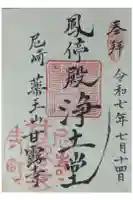 奉拝
令和七年七月十四日
鳳停殿
浄土堂
尼崎
薬王山甘露寺